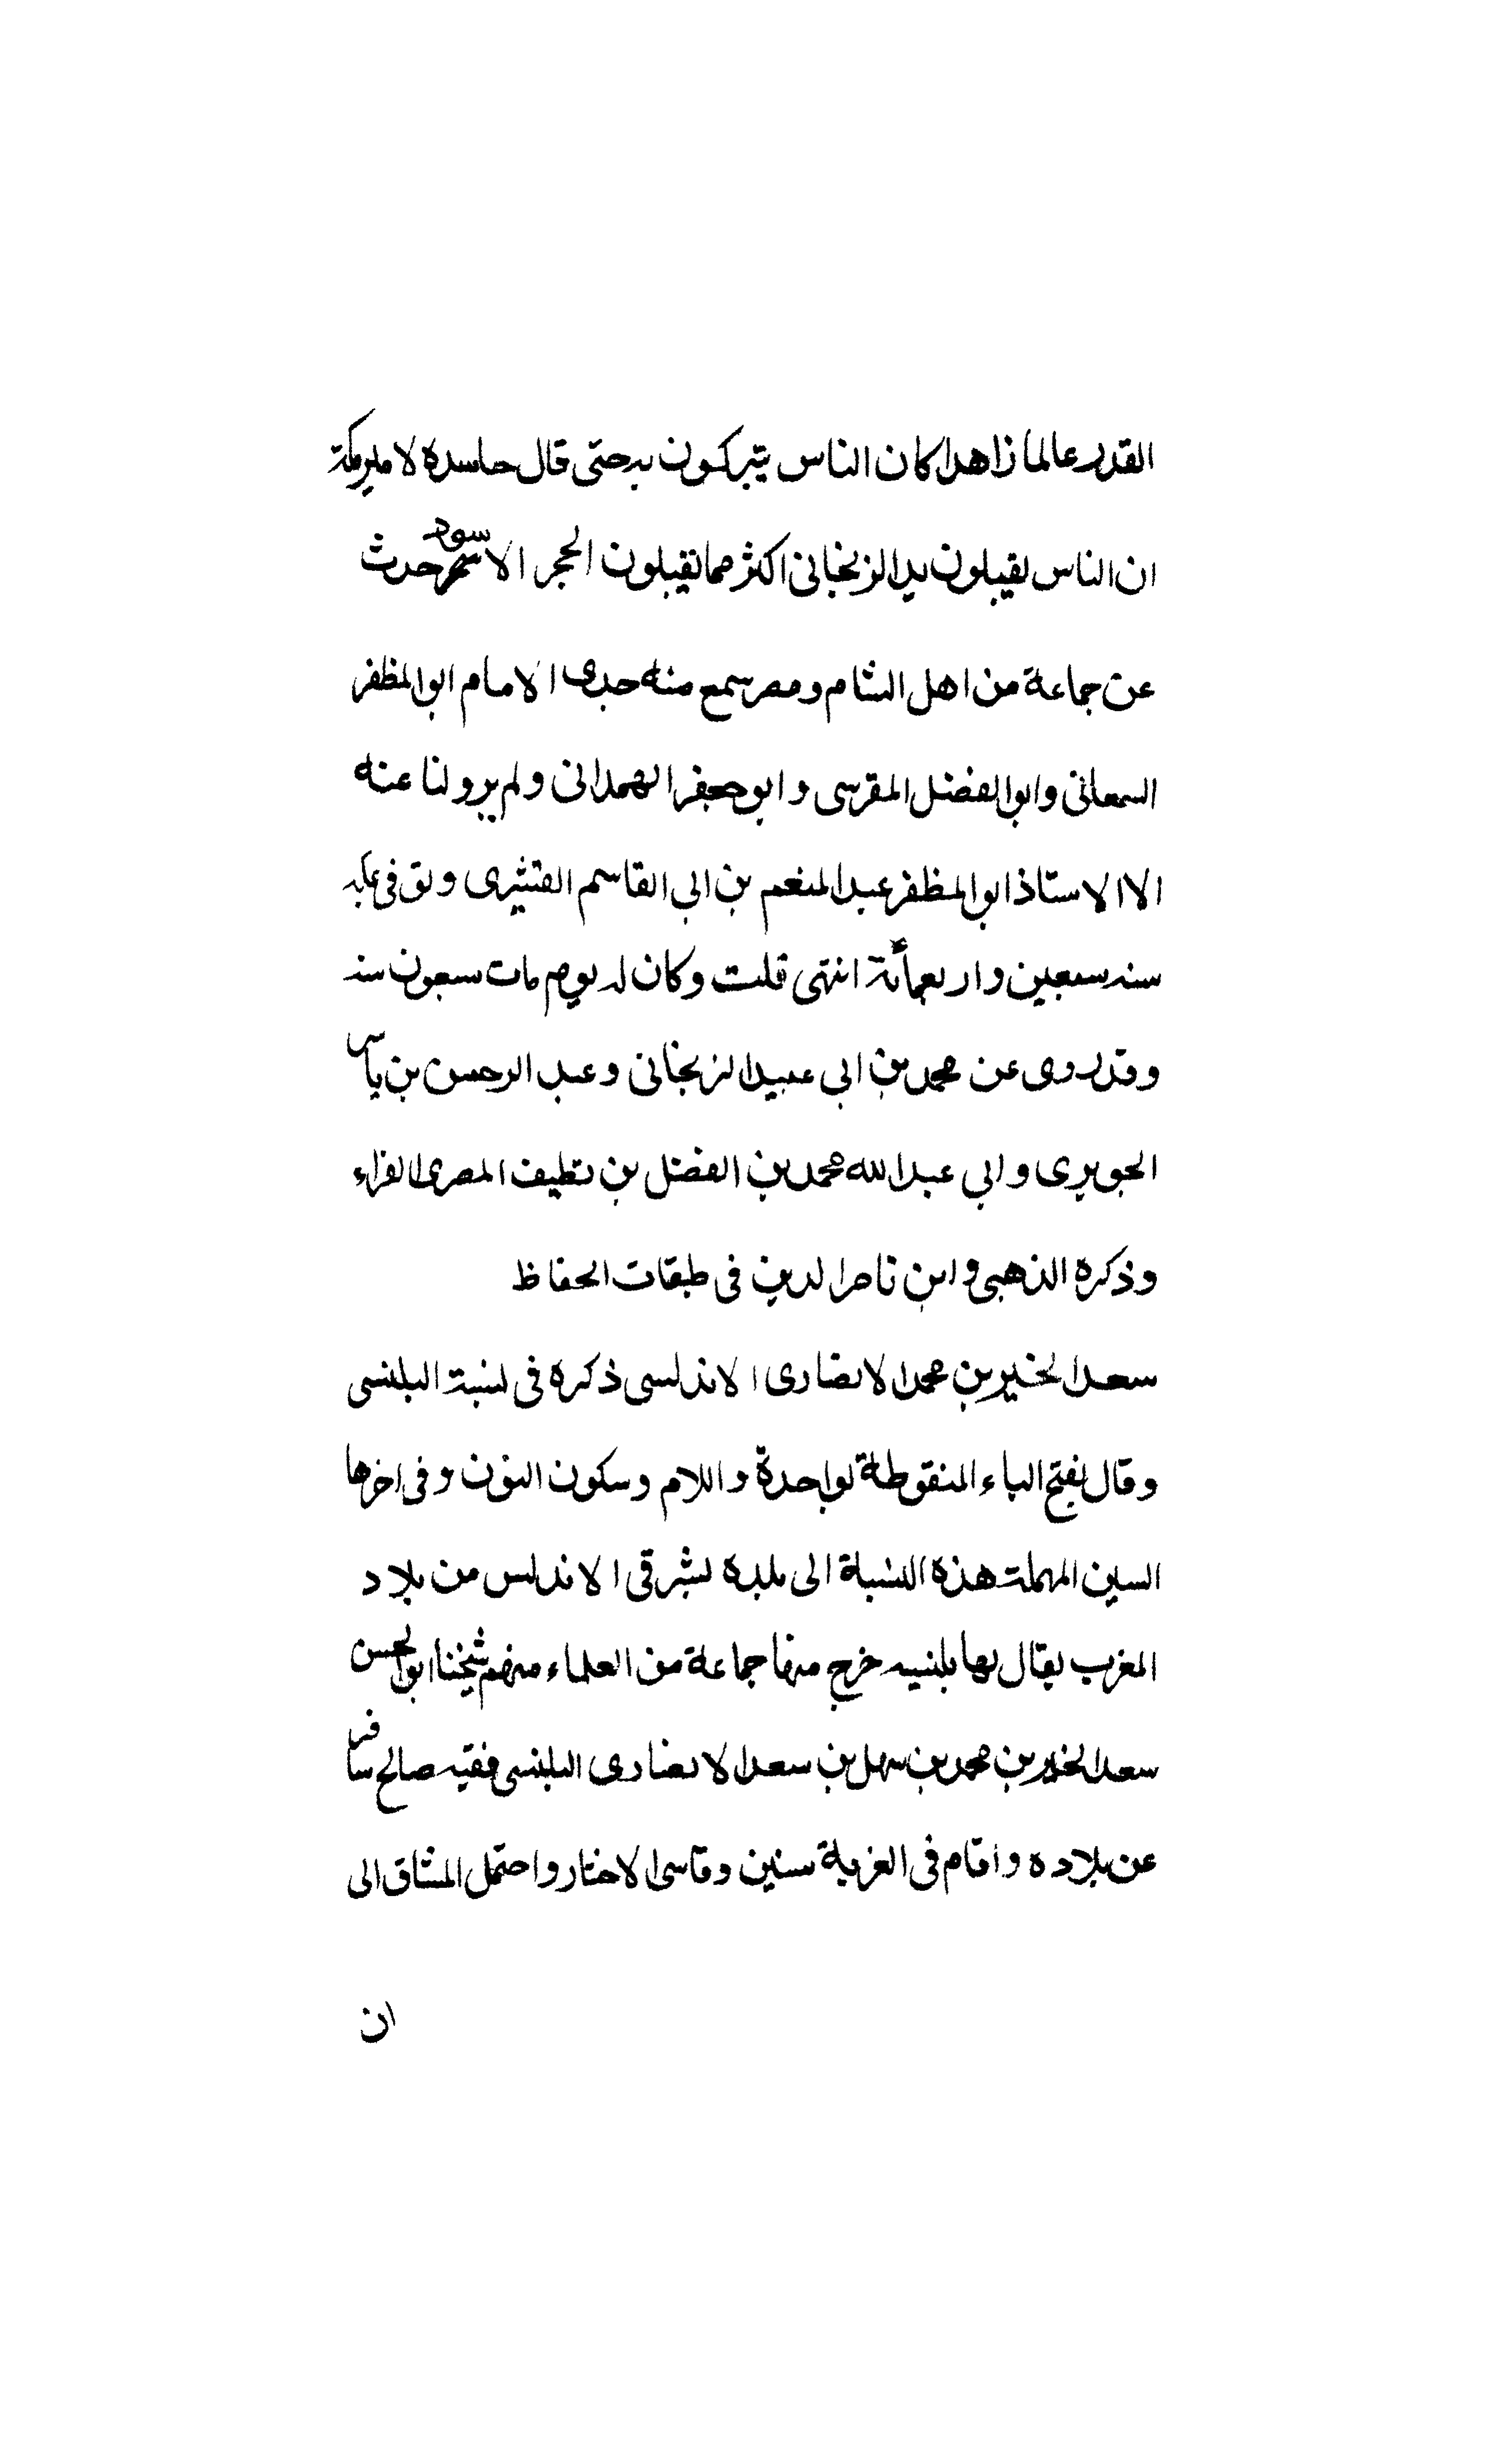 القدر عالما زاهدا كان الناس يتبركون به حتى قال حاسده لامير مكة
ان الناس يقبلون يد الزنجاني اكثر مما يقبلون الحجر الاسود حدث
عن جماعة من اهل الشام ومصر سمع منه جدى الامام ابو المظفر
السمعانى وابو الفضل المقرسى و ابو جعفر الهمدانى ولم يرو لنا عنه
الا الاستاذ ابو المظفر عبد المنعم بن ابى القاسم القشيرى و فى
سنه سبعين و اربعمائة انتهى قلت وكان له يوم مات سبعون سنه
وقد روى عن محمد بن ابى عبيد الزنجانى وعبد الرحمن بن ياسر
الجوبرى و ابي عبد الله محمد بن الفضل بن نظيف المصرى الفراء
وذكره الذهبى و ابن ناصر الدين فى طبقات الحفاظ
سعد الخير بن محمد الانصارى الاندلسى ذكره فى نسبة البلنسى
وقال بفتح الباء المنقوطة بواحدة واللام وسكون النون وفى اخرها
السين المهملة هذه النسبة الى بلده بشرقى الاندلس من بلاد
المغرب يقال لها بلنسيه خرج منها جماعة من العلماء منهم شيخنا ابو الحسن
سعد الخير بن محمد بن سهل بن سعد الانصارى البلنسى فقيه صالح سافر
عن بلاده و اقام فى الغربة سنين وقاسى الاخطار واحتمل المشاق الى
ان